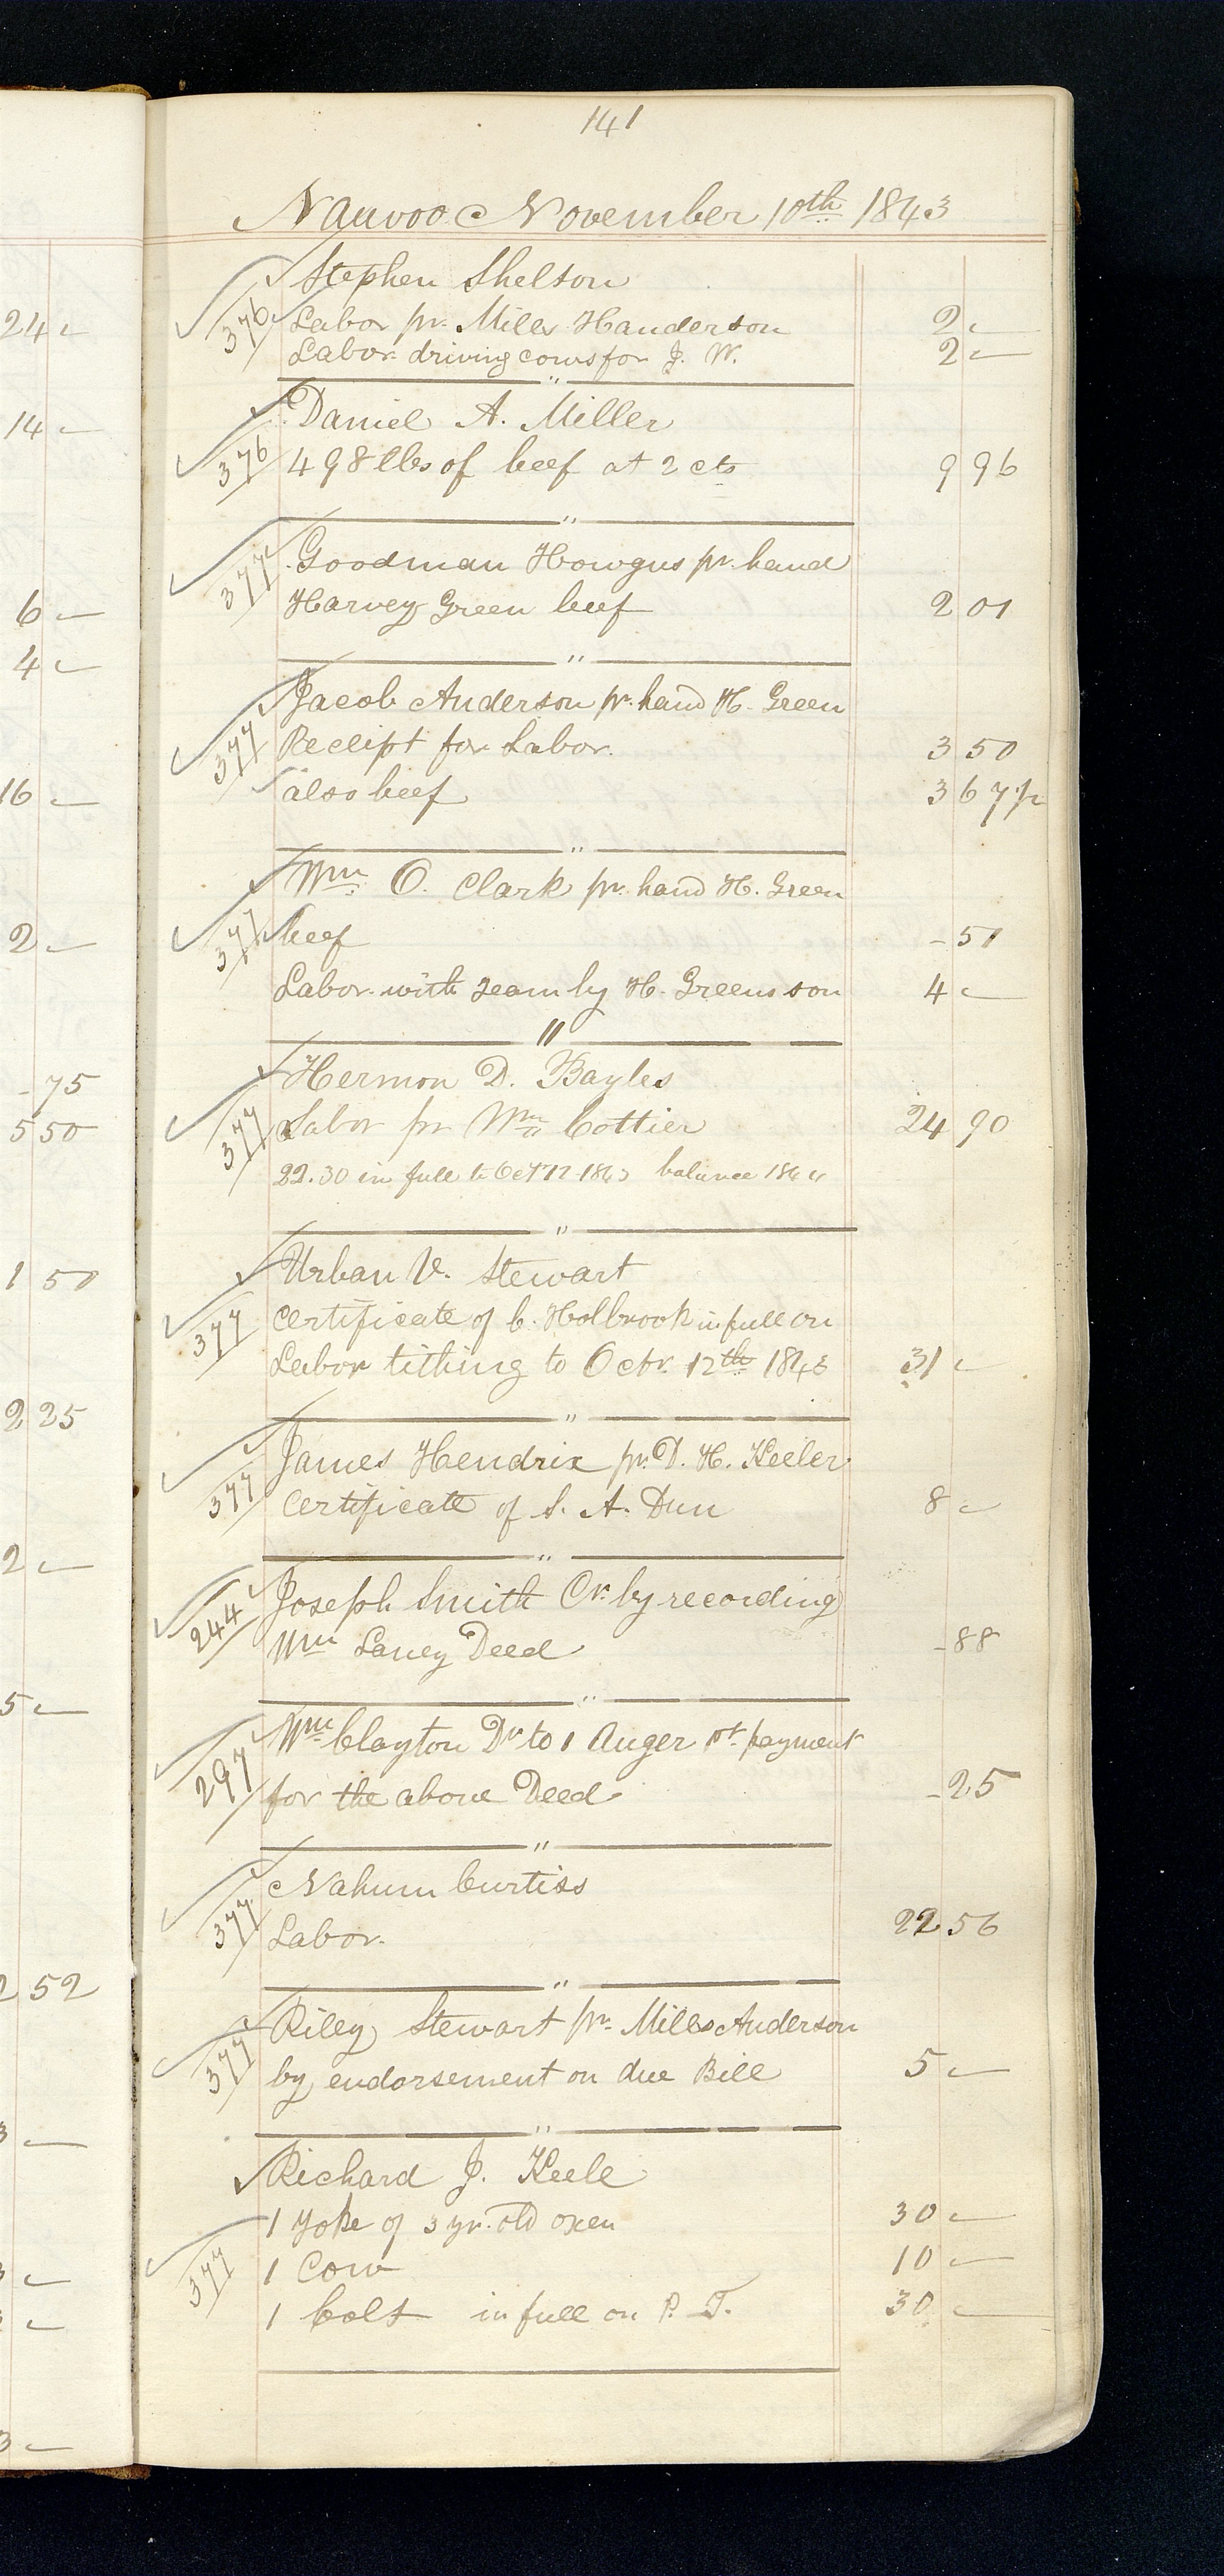 141
Nauvoo November 10th 1843
Stephen Shelton
376 Labor pr. Mills Handerson 2 –
Labor driving cows for J. W. 2 –
"
Daniel A. Miller
376 498 lbs of beef at 2 cts 9 96
"
377 Goodman Howgus pr. hand
Harvey Green beef 2 01
"
Jacob Anderson pr. hand H. Green
377 Receipt for Labor. 3 50
also beef 3 67 1/2
"
Wm O. Clark pr. hand H. Green
377 beef - 51
Labor with team by H. Greens son 4 –
"
Hermon D. Bayles
377 Labor pr Wm Cottier 24 90
22.30 in full to Oct 12 1843 balance 1844
"
Urban V. Stewart
377 Certificate of C. Holbrook in full on
Labor tithing to Octr. 12th 1843 31 –
"
James Hendrix pr. D. H. Keeler
377 Certificate of S. A. Dun 8 –
"
Joseph Smith Cr. by recording
244 Wm Laney Deed - 88
"
Wm Clayton Dr to 1 Auger pt. payment
297 for the above Deed - 25
"
Nahum Curtiss
377 Labor. 22 56
"
Riley Stewart pr. Mills Anderson
377 by endorsement on due Bill 5 –
"
Richard J. Keele
1 Yoke of 3 yr. old oxen 30 –
377 1 Cow 10 –
1 Colt in full on P. T. 30 –
24 –
14 –
6 –
4 –
16 –
2 –
- 75
5 50
1 50
2 25
2 –
5 –
2 52
3 –